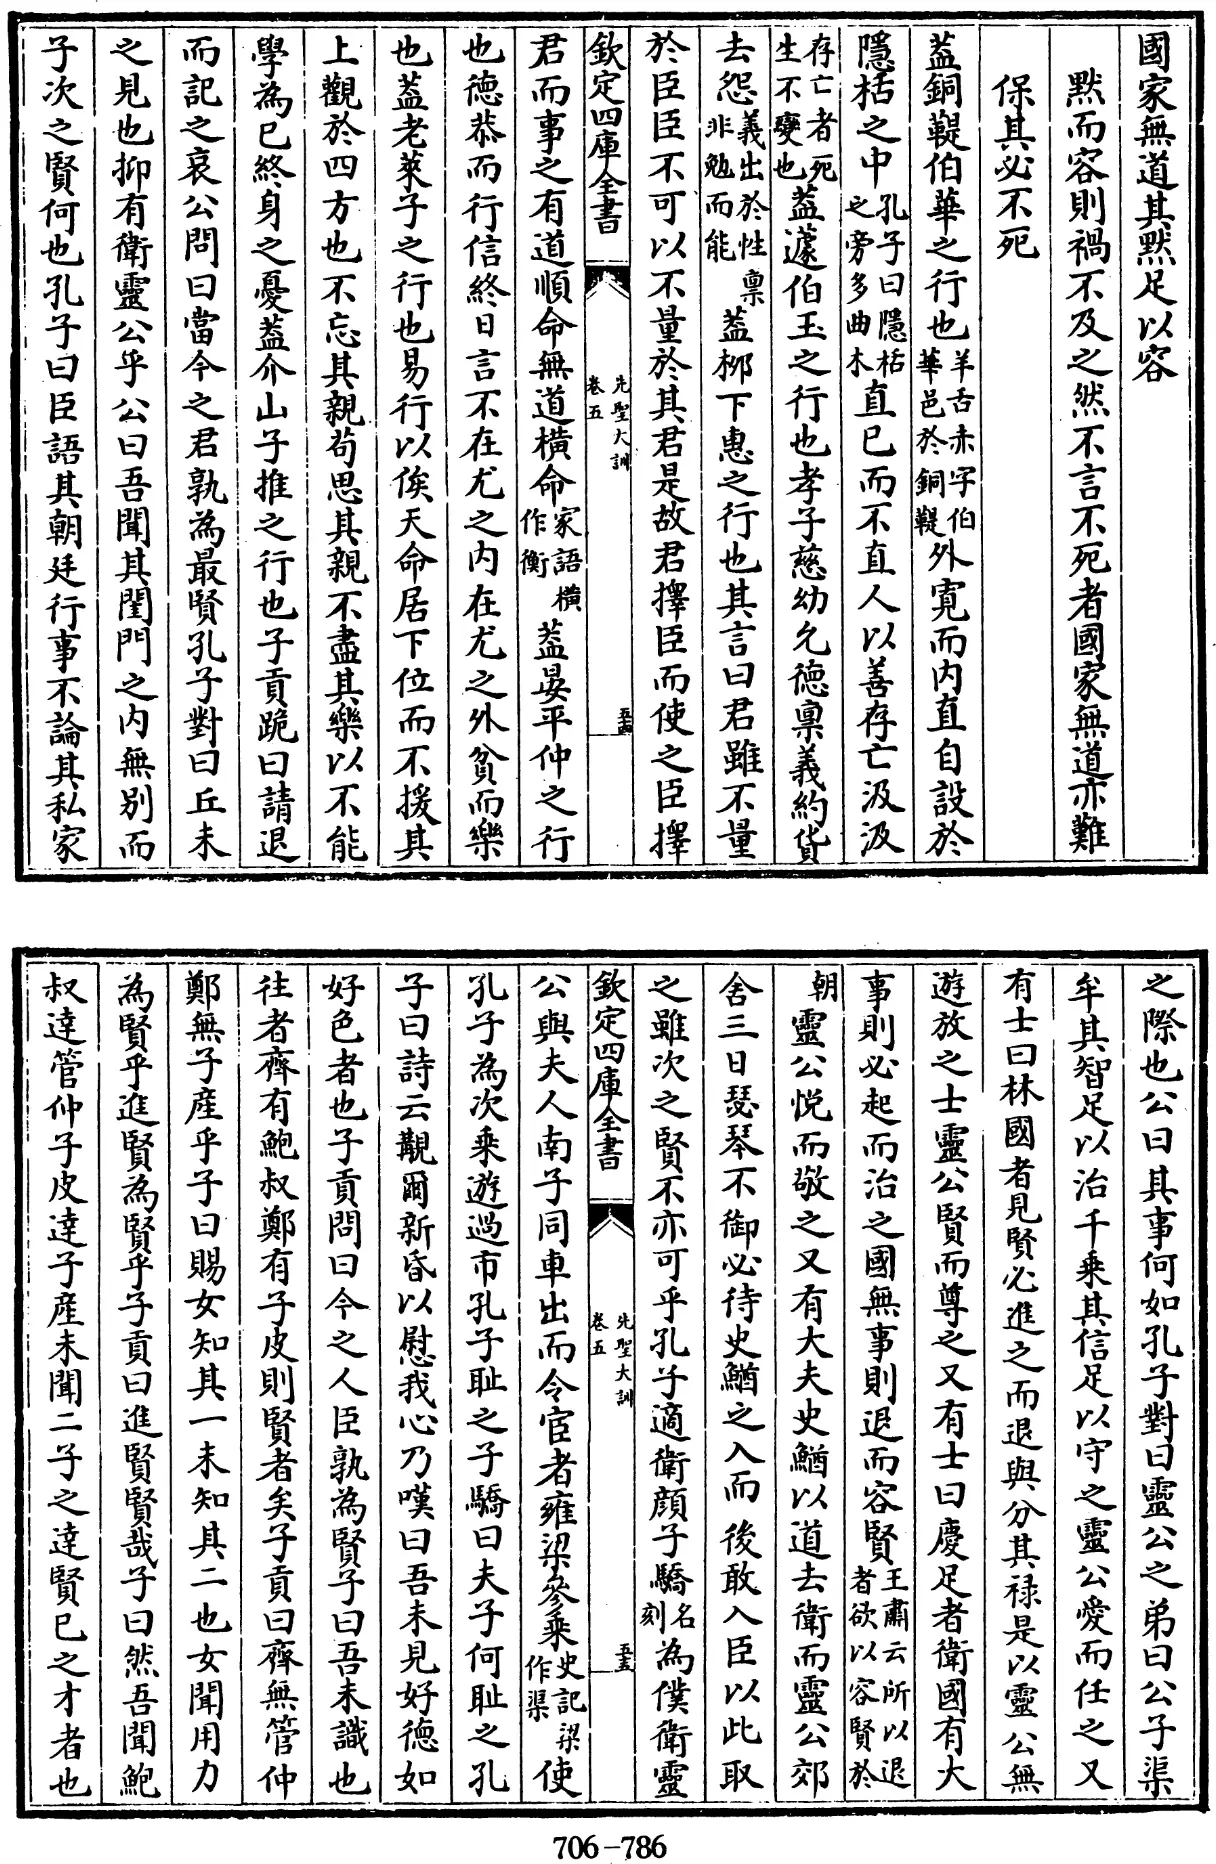 國家無道其黙足以容
黙而容則禍不及之然不言不死者國家無道亦難
保其必不死
蓋銅鞮伯華之行也羊舌赤字伯華邑於銅鞮外寛而内直自設於
隱栝之中孔子曰隱栝之旁多曲木直己而不直人以善存亡汲汲
存亡者死生不變也蓋蘧伯玉之行也孝子慈幼允德稟義約貨
去怨義出於性稟非勉而能蓋栁下惠之行也其言曰君雖不量
於臣臣不可以不量於其君是故君擇臣而使之臣擇
欽定四庫全書 先聖大訓 卷五 五十四
君而事之有道順命無道横命家語横作衡蓋晏平仲之行
也德恭而行信終日言不在尤之内在尤之外貧而樂
也蓋老萊子之行也易行以俟天命居下位而不援其
上觀於四方也不忘其親茍思其親不盡其樂以不能
學為己終身之憂蓋介山子推之行也子貢跪曰請退
而記之哀公問曰當今之君孰為最賢孔子對曰丘未
之見也抑有衛靈公乎公曰吾聞其閨門之内無别而
子次之賢何也孔子曰臣語其朝廷行事不論其私家
之際也公曰其事何如孔子對曰靈公之弟曰公子渠
牟其智足以治千乗其信足以守之靈公愛而任之又
有士曰林國者見賢必進之而退與分其禄是以靈公無
遊放之士靈公賢而尊之又有士曰慶足者衛國有大
事則必起而治之國無事則退而容賢王肅云所以退者欲以容賢於
朝靈公悅而敬之又有大夫史鰌以道去衛而靈公郊
舍三日瑟琴不御必待史鰌之入而後敢入臣以此取
之雖次之賢不亦可乎孔子適衛顔子驕名刻為僕衛靈
欽定四庫全書 先聖大訓 卷五 五十五
公與夫人南子同車出而令宦者雍梁參乗史記梁作渠使
孔子為次乗遊過市孔子恥之子驕曰夫子何恥之孔
子曰詩云覯爾新昏以慰我心乃嘆曰吾未見好德如
好色者也子貢問曰今之人臣孰為賢子曰吾未識也
往者齊有鮑叔鄭有子皮則賢者矣子貢曰齊無管仲
鄭無子產乎子曰賜女知其一未知其二也女聞用力
為賢乎進賢為賢乎子貢曰進賢賢哉子曰然吾聞鮑
叔達管仲子皮達子產未聞二子之達賢己之才者也
706-786